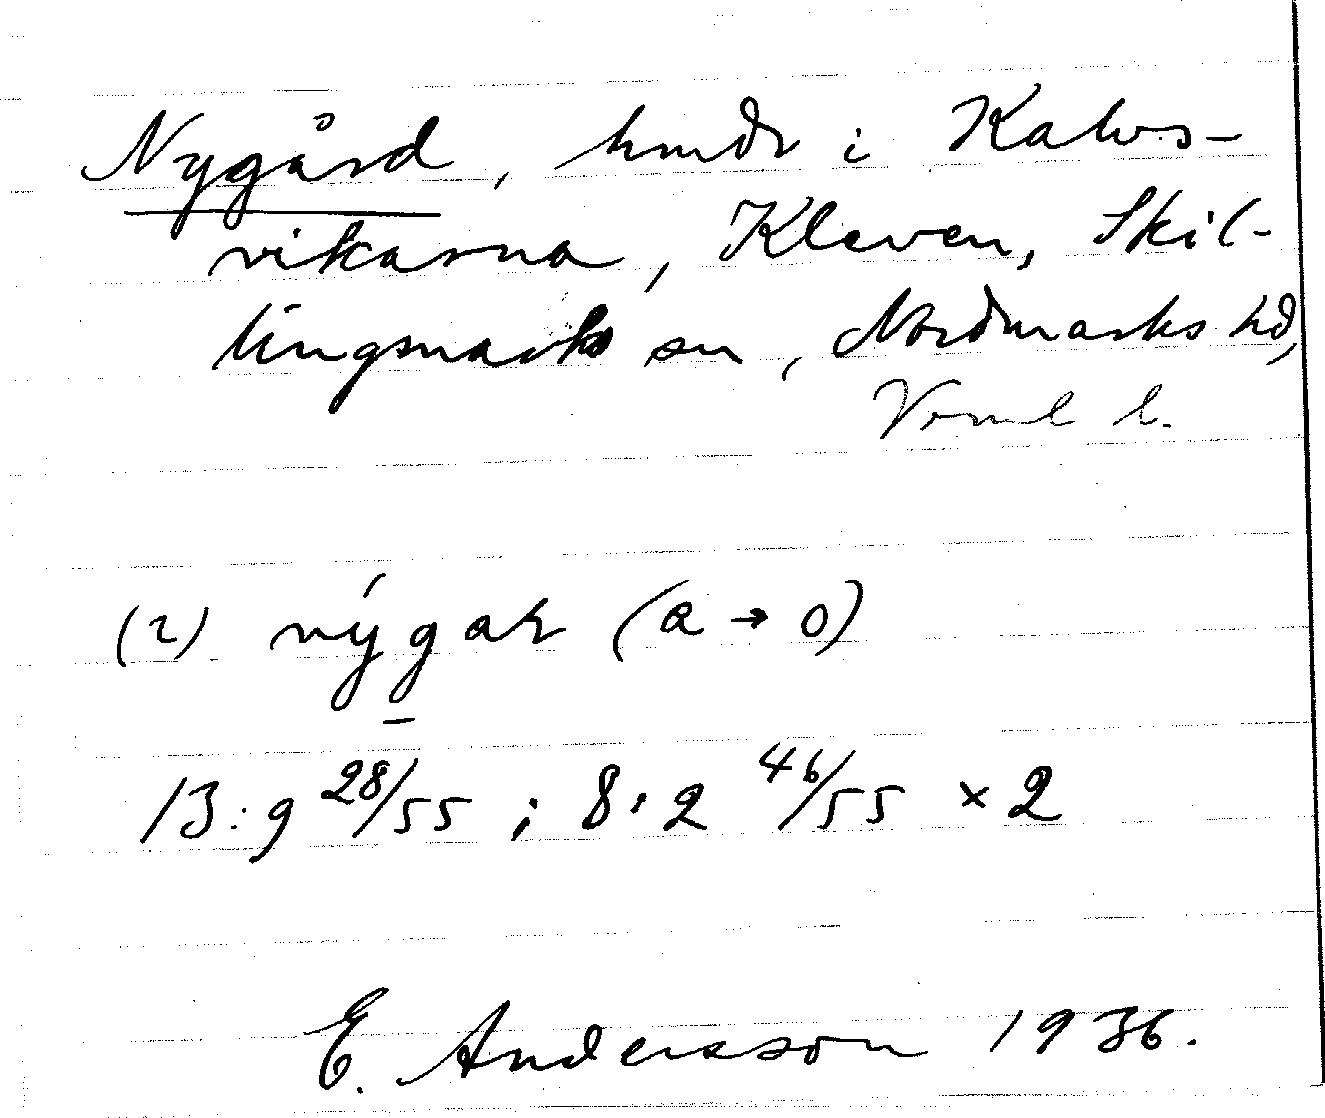 Nygård, hmdr i Kalvs-
vikarna, Kleven, Skil-
lingmarks sn, Nordmarks hd,
Vrml l.
(2) nýgar (a → o)
13:9 28/55 ; 8:2 46/55 × 2
E. Andersson 1936.